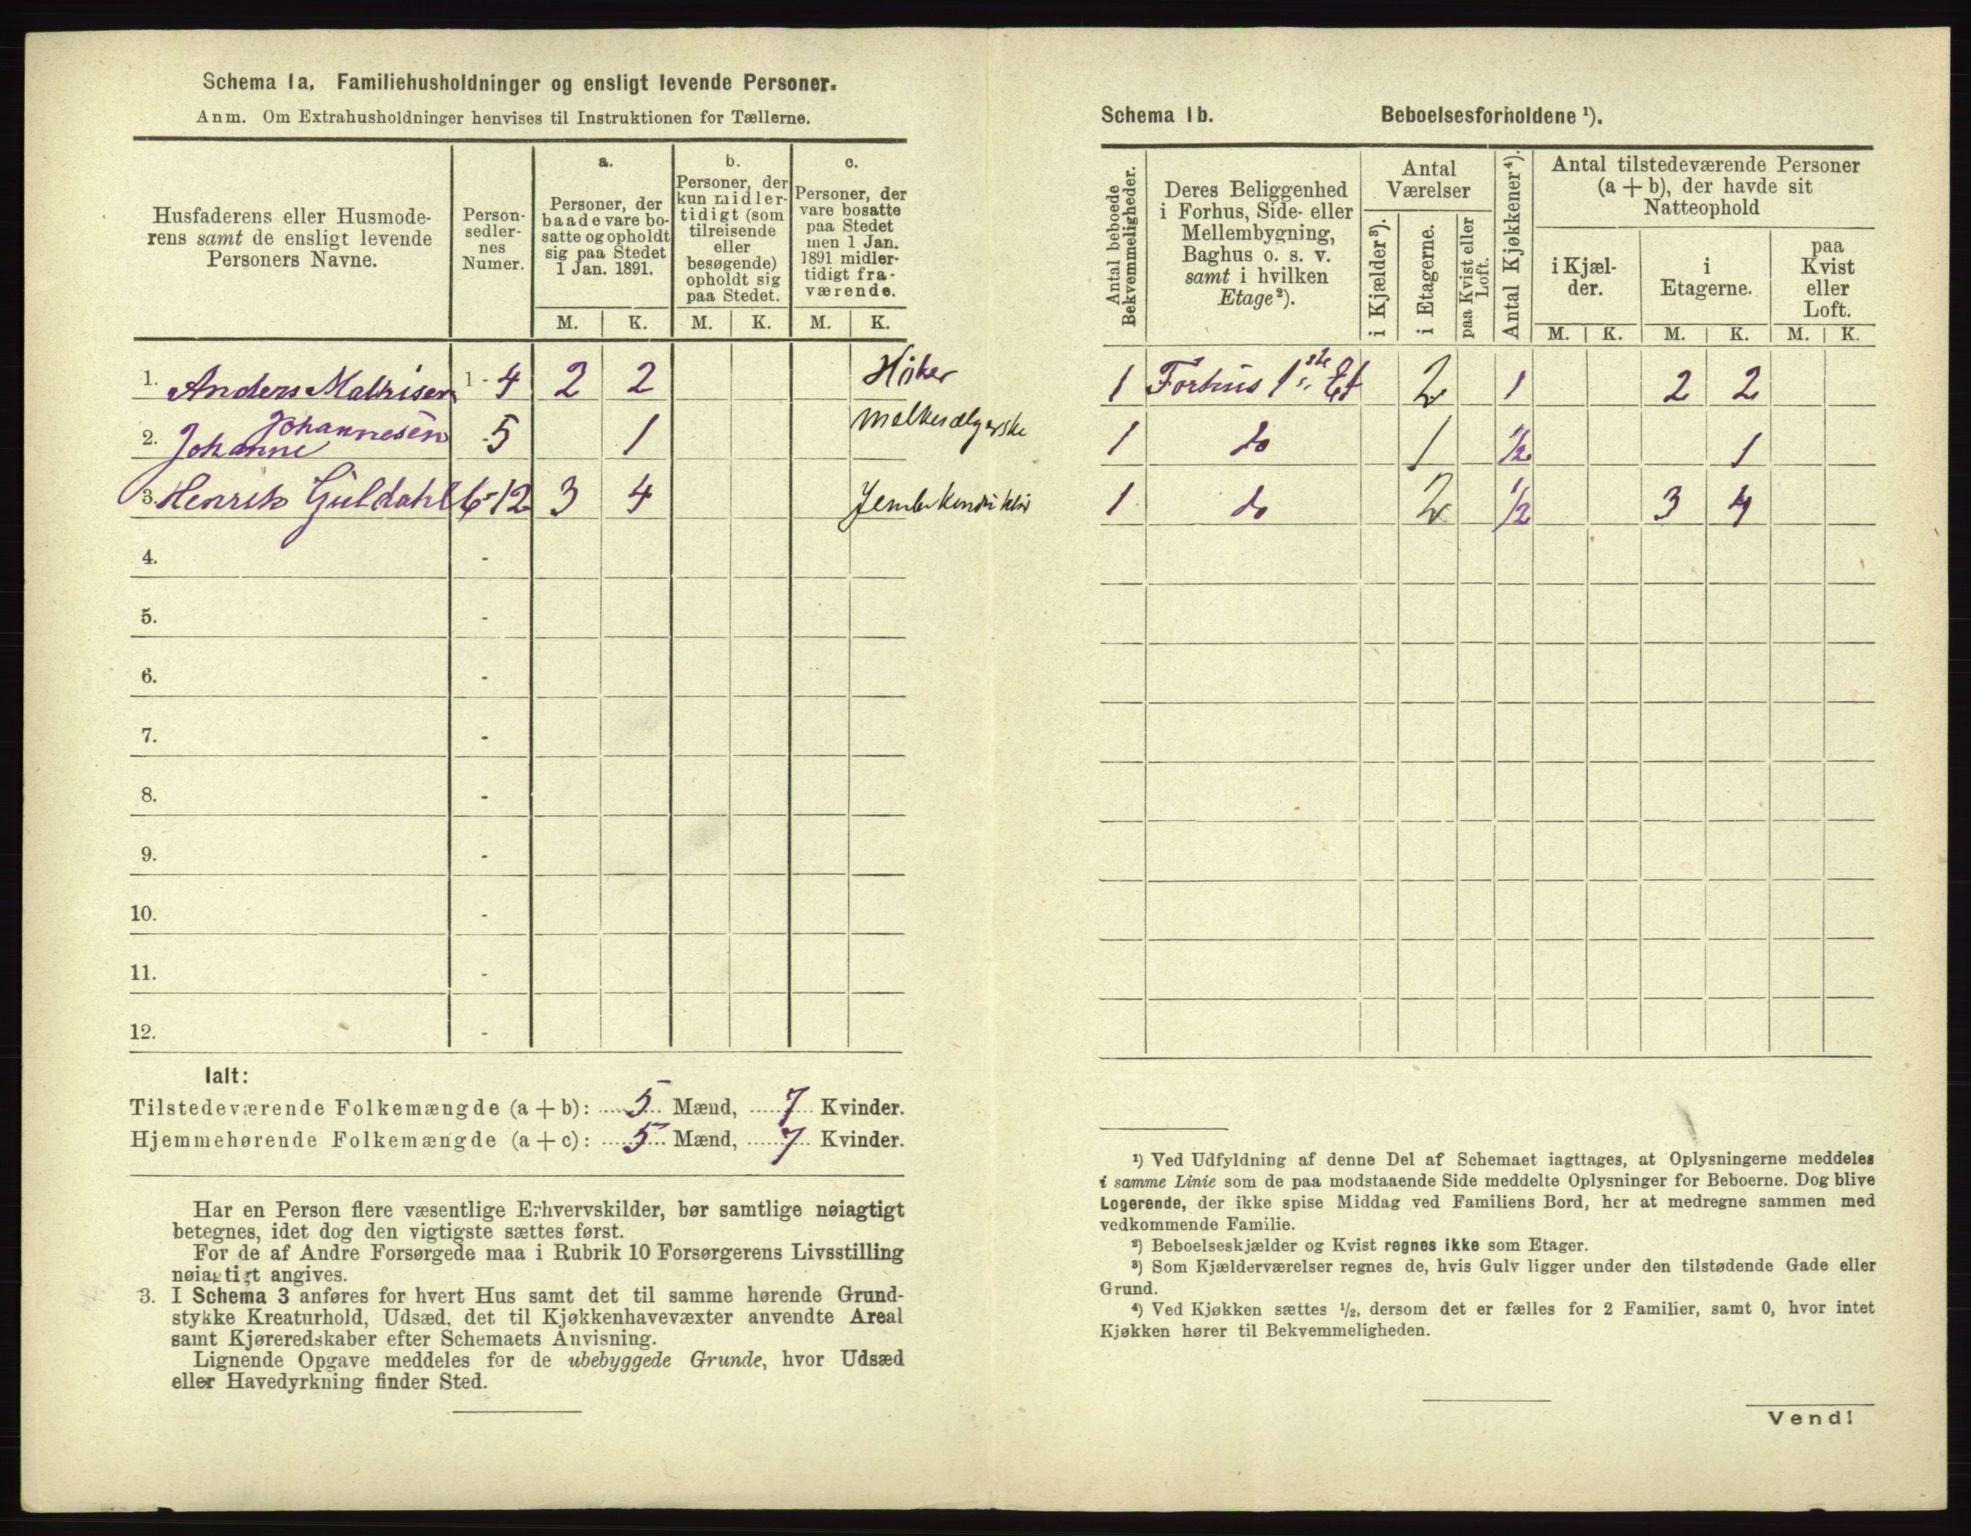 Schema 1a. Familiehusholdninger og ensligt levende Personer.
Anm. Om Extrahusholdninger henvises til Instruktionen for Tællerne.
Husfaderens eller Husmode-
rens samt de ensligt levende
Personers Navne.
Person-
sedler-
nes
Numer.
a.
Personer, der
baade vare bo-
satte og opholdt
sig paa Stedet
1 Jan. 1891.
b.
Personer, der
kun midler-
tidigt (som
tilreisende
eller
besøgende)
opholdt sig
paa Stedet.
c.
Personer, der
vare bosatte
paa Stedet
men 1 Jan.
1891 midler-
tidigt fra-
værende.
M. K. M. K. M. K.
1. Anders Mathisen 1-4 2 2 Høker
2. Johanne Johannesen -5 1 Melkesælgerske
3. Henrik Guldahl 6-12 3 4
4. -
5. -
6. -
7. -
8. -
9. -
10. -
11. -
12. -
Ialt:
Tilstedeværende Folkemængde (a + b): 5 Mænd, 7 Kvinder.
Hjemmehørende Folkemængde (a + c): 5 Mænd, 7 Kvinder.
Har en Person flere væsentlige Erhvervskilder, bør samtlige nøiagtigt
betegnes, idet dog den vigtigste sættes først.
For de af Andre Forsørgede maa i Rubrik 10 Forsørgerens Livsstilling
nøiagtigt angives.
3. I Schema 3 anføres for hvert Hus samt det til samme hørende Grund-
stykke Kreaturhold, Udsæd, det til Kjøkkenhavevæxter anvendte Areal
samt Kjøreredskaber efter Schemaets Anvisning.
Lignende Opgave meddeles for de ubebyggede Grunde, hvor Udsæd
eller Havedyrkning finder Sted.
Schema 1b. Beboelsesforholdene ¹).
Antal beboede
Bekvemmeligheder.
Deres Beliggenhed
i Forhus, Side- eller
Mellembygning,
Baghus o. s. v.
samt i hvilken
Etage²).
Antal
Værelser
i Kjælder³).
i Etagerne.
paa Kvist eller
Loft.
Antal Kjøkkener⁴).
Antal tilstedeværende Personer
(a + b), der havde sit
Natteophold
i Kjæl-
der.
i
Etagerne.
paa
Kvist
eller
Loft.
M. K. M. K. M. K.
1 Forhus 1ste Et 2 1 2 2
1 do 1 ½ 1
1 do 2 ½ 3 4
¹) Ved Udfyldning af denne Del af Schemaet iagttages, at Oplysningerne meddeles
i samme Linie som de paa modstaaende Side meddelte Oplysninger for Beboerne. Dog blive
Logerende, der ikke spise Middag ved Familiens Bord, her at medregne sammen med
vedkommende Familie.
²) Beboelseskjælder og Kvist regnes ikke som Etager.
³) Som Kjælderværelser regnes de, hvis Gulv ligger under den tilstødende Gade eller
Grund.
⁴) Ved Kjøkken sættes ½, dersom det er fælles for 2 Familier, samt 0, hvor intet
Kjøkken hører til Bekvemmeligheden.
Vend!